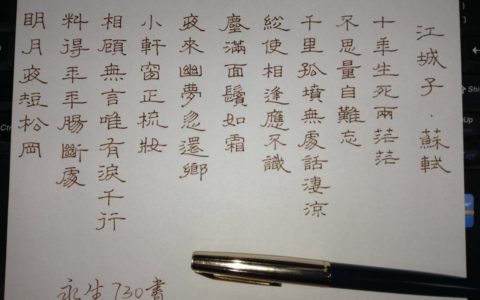 江城子·蘇軾
十年生死兩茫茫
不思量自難忘
千里孤墳無處話淒涼
縱使相逢應不識
塵滿面鬢如霜
夜來幽夢忽還鄉
小軒窗正梳妝
相顧無言唯有淚千行
料得年年腸斷處
明月夜短松岡
永生730書